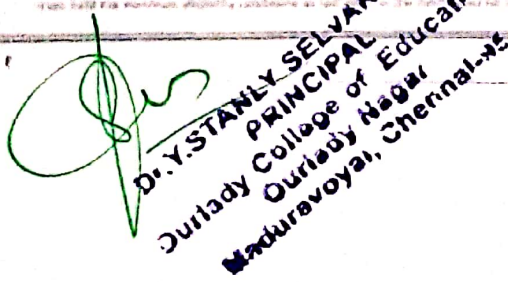 Dr.Y.STANLY SELVAK
PRINCIPAL
Ourlady College of Educati
Ourlady Nagar
Maduravoyal, Chennai-95